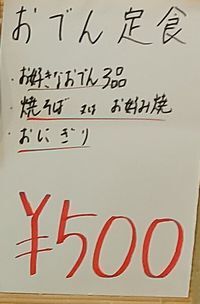 おでん定食
・お好きなおでん3品
・焼そば又はお好み焼
・おにぎり
¥500